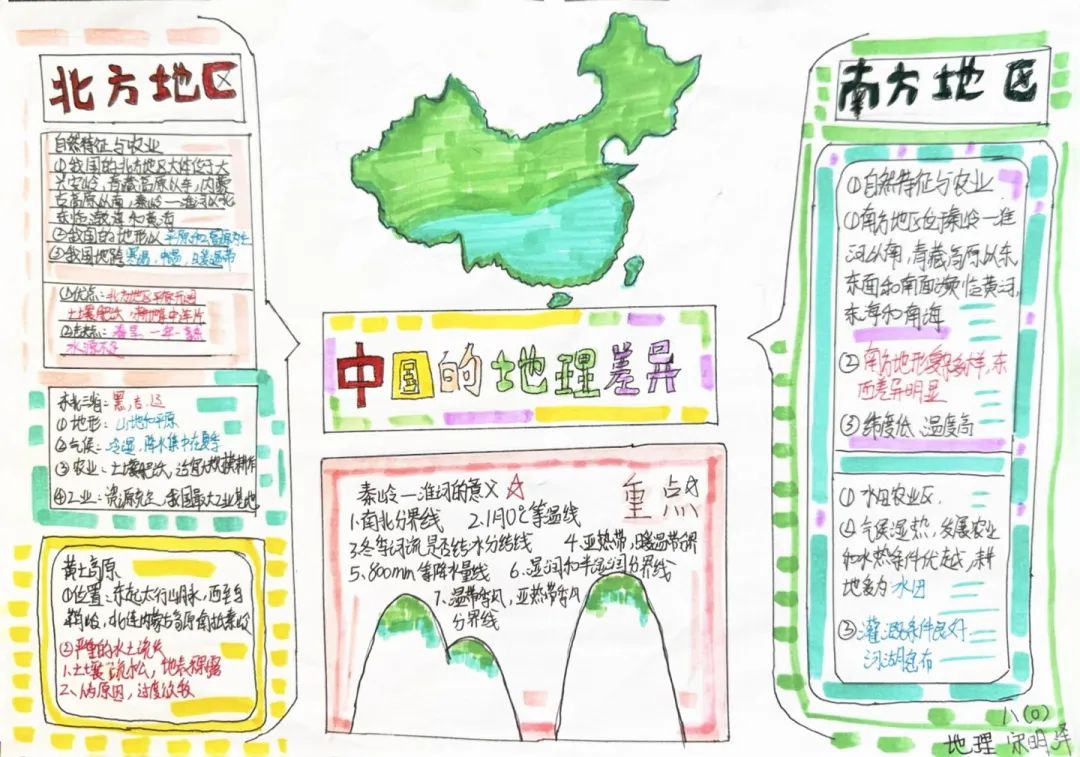 北方地区
自然特征与农业
①我国的北方地区大体位于大
兴安岭,青藏高原以东,内蒙
古高原以南,秦岭一淮河以北
东临渤海和黄海
②我国的地形以平原和高原为主
③我国地跨寒温,中温,暖温带
①优点:北方地区平原广阔
土壤肥沃,耕地集中连片
一年一熟
水源不足
东北三省:黑,吉,辽
①地形:山地和平原
②气候:冷湿,降水集中在夏季
③农业:土壤肥沃,适宜大规模耕作
④工业:资源充足,我国最大工业基地
黄土高原
①位置:东起太行山脉,西至乌
鞘岭,北连内蒙古高原南抵秦岭
②严重的水土流失
1.土壤疏松,地表裸露
2.人为原因,过度放牧
中国的地理差异
秦岭一淮河的意义
重点
1.南北分界线 2.1月0℃等温线
3.冬季河流是否结冰分界线 4.亚热带,暖温带分界
5.800mm等降水量线 6.湿润和半湿润分界线
7.温带季风,亚热带季风
分界线
南方地区
①自然特征与农业
①南方地区位于秦岭一淮
河以南,青藏高原以东
东面和南面濒临黄河,
东海和南海
②南方地形复杂多样,东
西差异明显
③纬度低、温度高
①水田农业区.
②气候湿热,发展农业
和水热条件优越,耕
地多为水田
③灌溉条件良好.
河湖密布
八(0)
地理 宋明泽